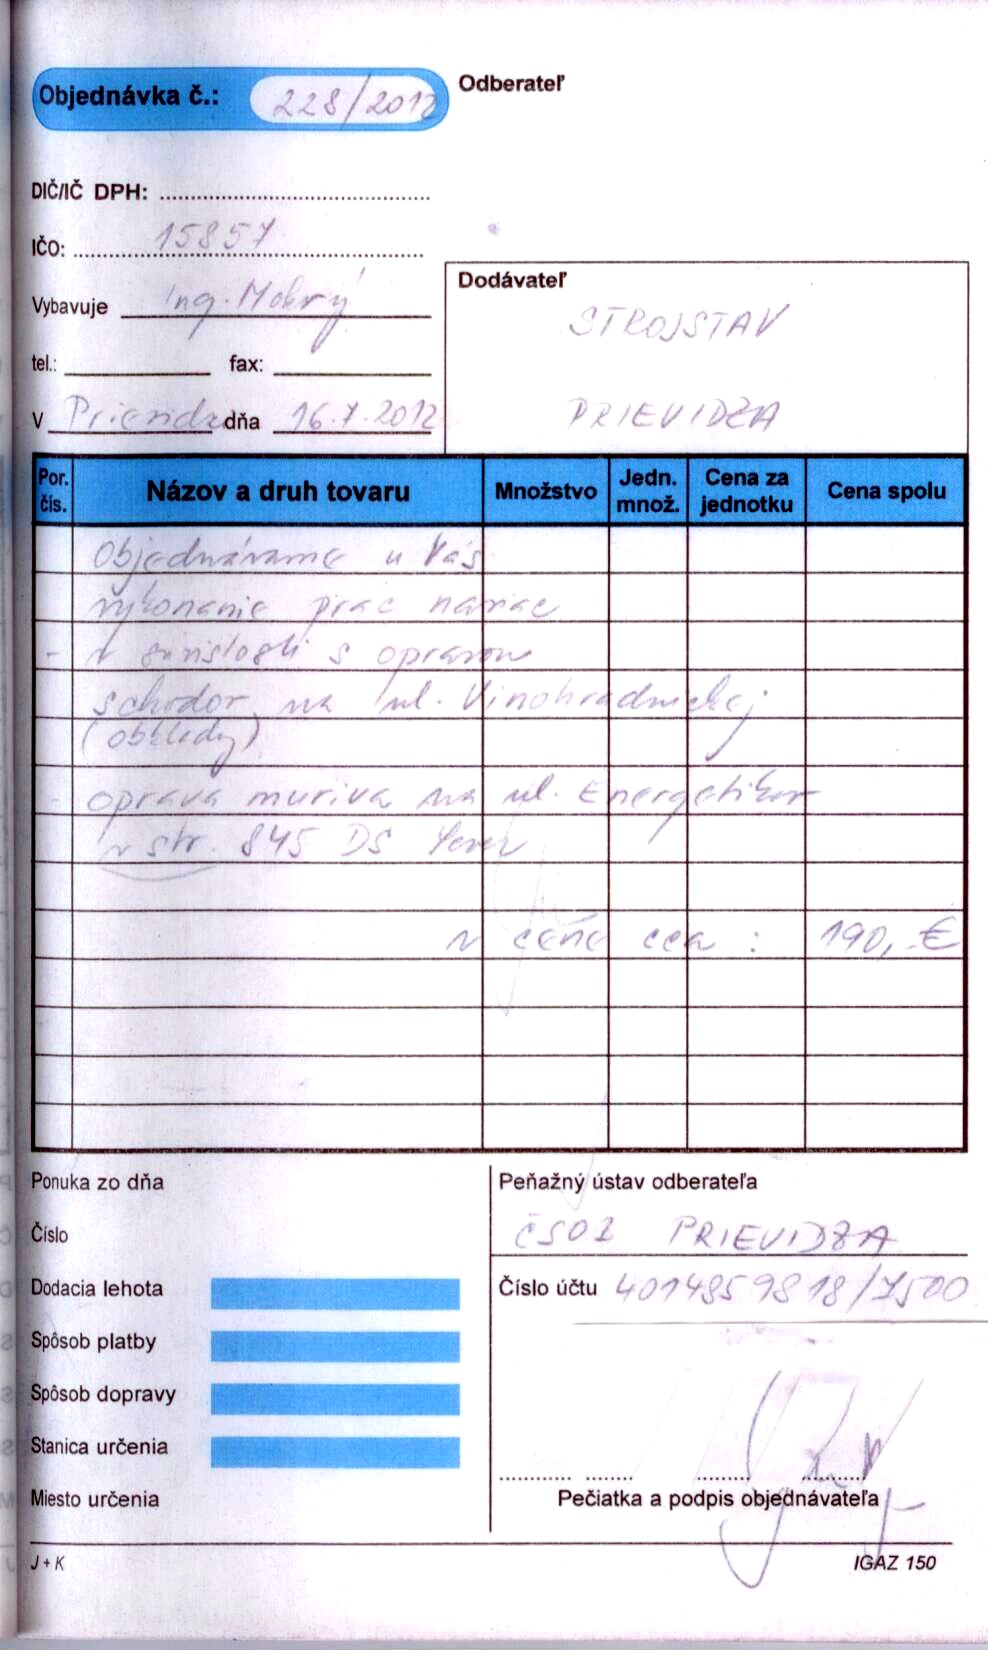 Objednávka č.: 228/2012
Odberateľ
DIČ/IČ DPH:
IČO: 15857
Vybavuje Ing. Mokrý
tel.: fax:
V Prievidz dňa 16.7.2012
Dodávateľ
STROJSTAV
PRIEVIDZA
Por. čís. Názov a druh tovaru Množstvo Jedn. množ. Cena za jednotku Cena spolu
Objednávame u Vás
vykonanie prac naviac
- v súvislosti s opravou
schodov na ul. Vinohradníckej
(obklady)
- oprava muriva na ul. Energetikov
v str. 845 DS
v cene cca : 190,- €
Ponuka zo dňa
Číslo
Dodacia lehota
Spôsob platby
Spôsob dopravy
Stanica určenia
Miesto určenia
Peňažný ústav odberateľa
ČSOB PRIEVIDZA
Číslo účtu 4014859818/7500
Pečiatka a podpis objednávateľa
J + K
IGAZ 150